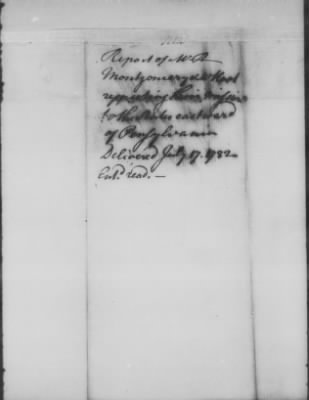 Report of Mr
Montgomery & Root
respecting their mission
to the States eastward
of Pensylvania
Delivered July 17. 1782
Entd. read. —